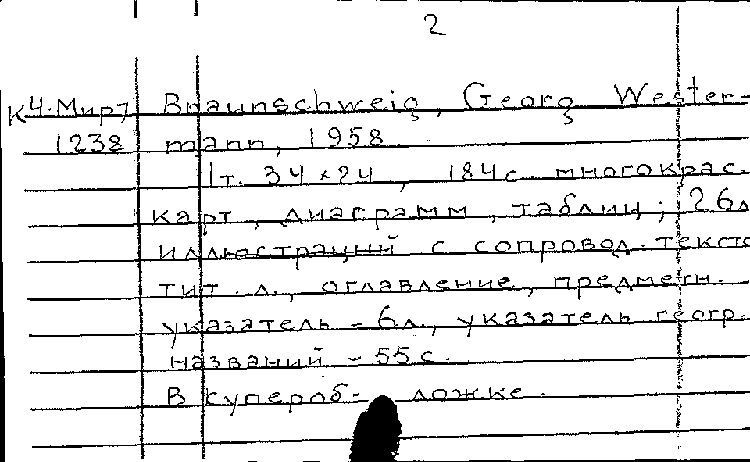 2
К4.Мир7 Braunschweig, Georg Wester-
1238 mann, 1958
1т. 34×24, 184с. многокрас.
карт, диаграмм, таблиц; 26л
иллюстраций с сопровод. тексто
тит. л., оглавление, предметн.
указатель - 6л., указатель геогр.
названий - 55с.
В супероб- ложке.